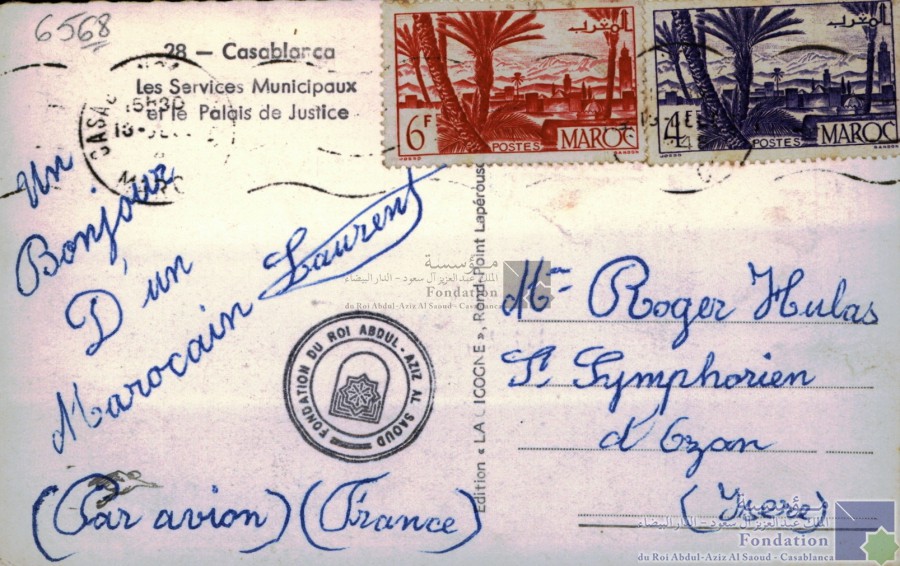 6568
28 — Casablanca
Les Services Municipaux
et le Palais de Justice
6F
POSTES
MAROC
المغرب
4F
POSTES
MAROC
المغرب
Un
Bonjour
D'un
Marocain Laurent
(Par avion) (France)
FONDATION DU ROI ABDUL-AZIZ AL SAOUD
Edition « LA CIGOGNE », Rond-Point Lapérouse
Mr Roger Hulas
St Symphorien
d'Ozon
(Isere)
مؤسسة
الملك عبد العزيز آل سعود - الدار البيضاء
Fondation
du Roi Abdul-Aziz Al Saoud - Casablanca
مؤسسة
الملك عبد العزيز آل سعود - الدار البيضاء
Fondation
du Roi Abdul-Aziz Al Saoud - Casablanca